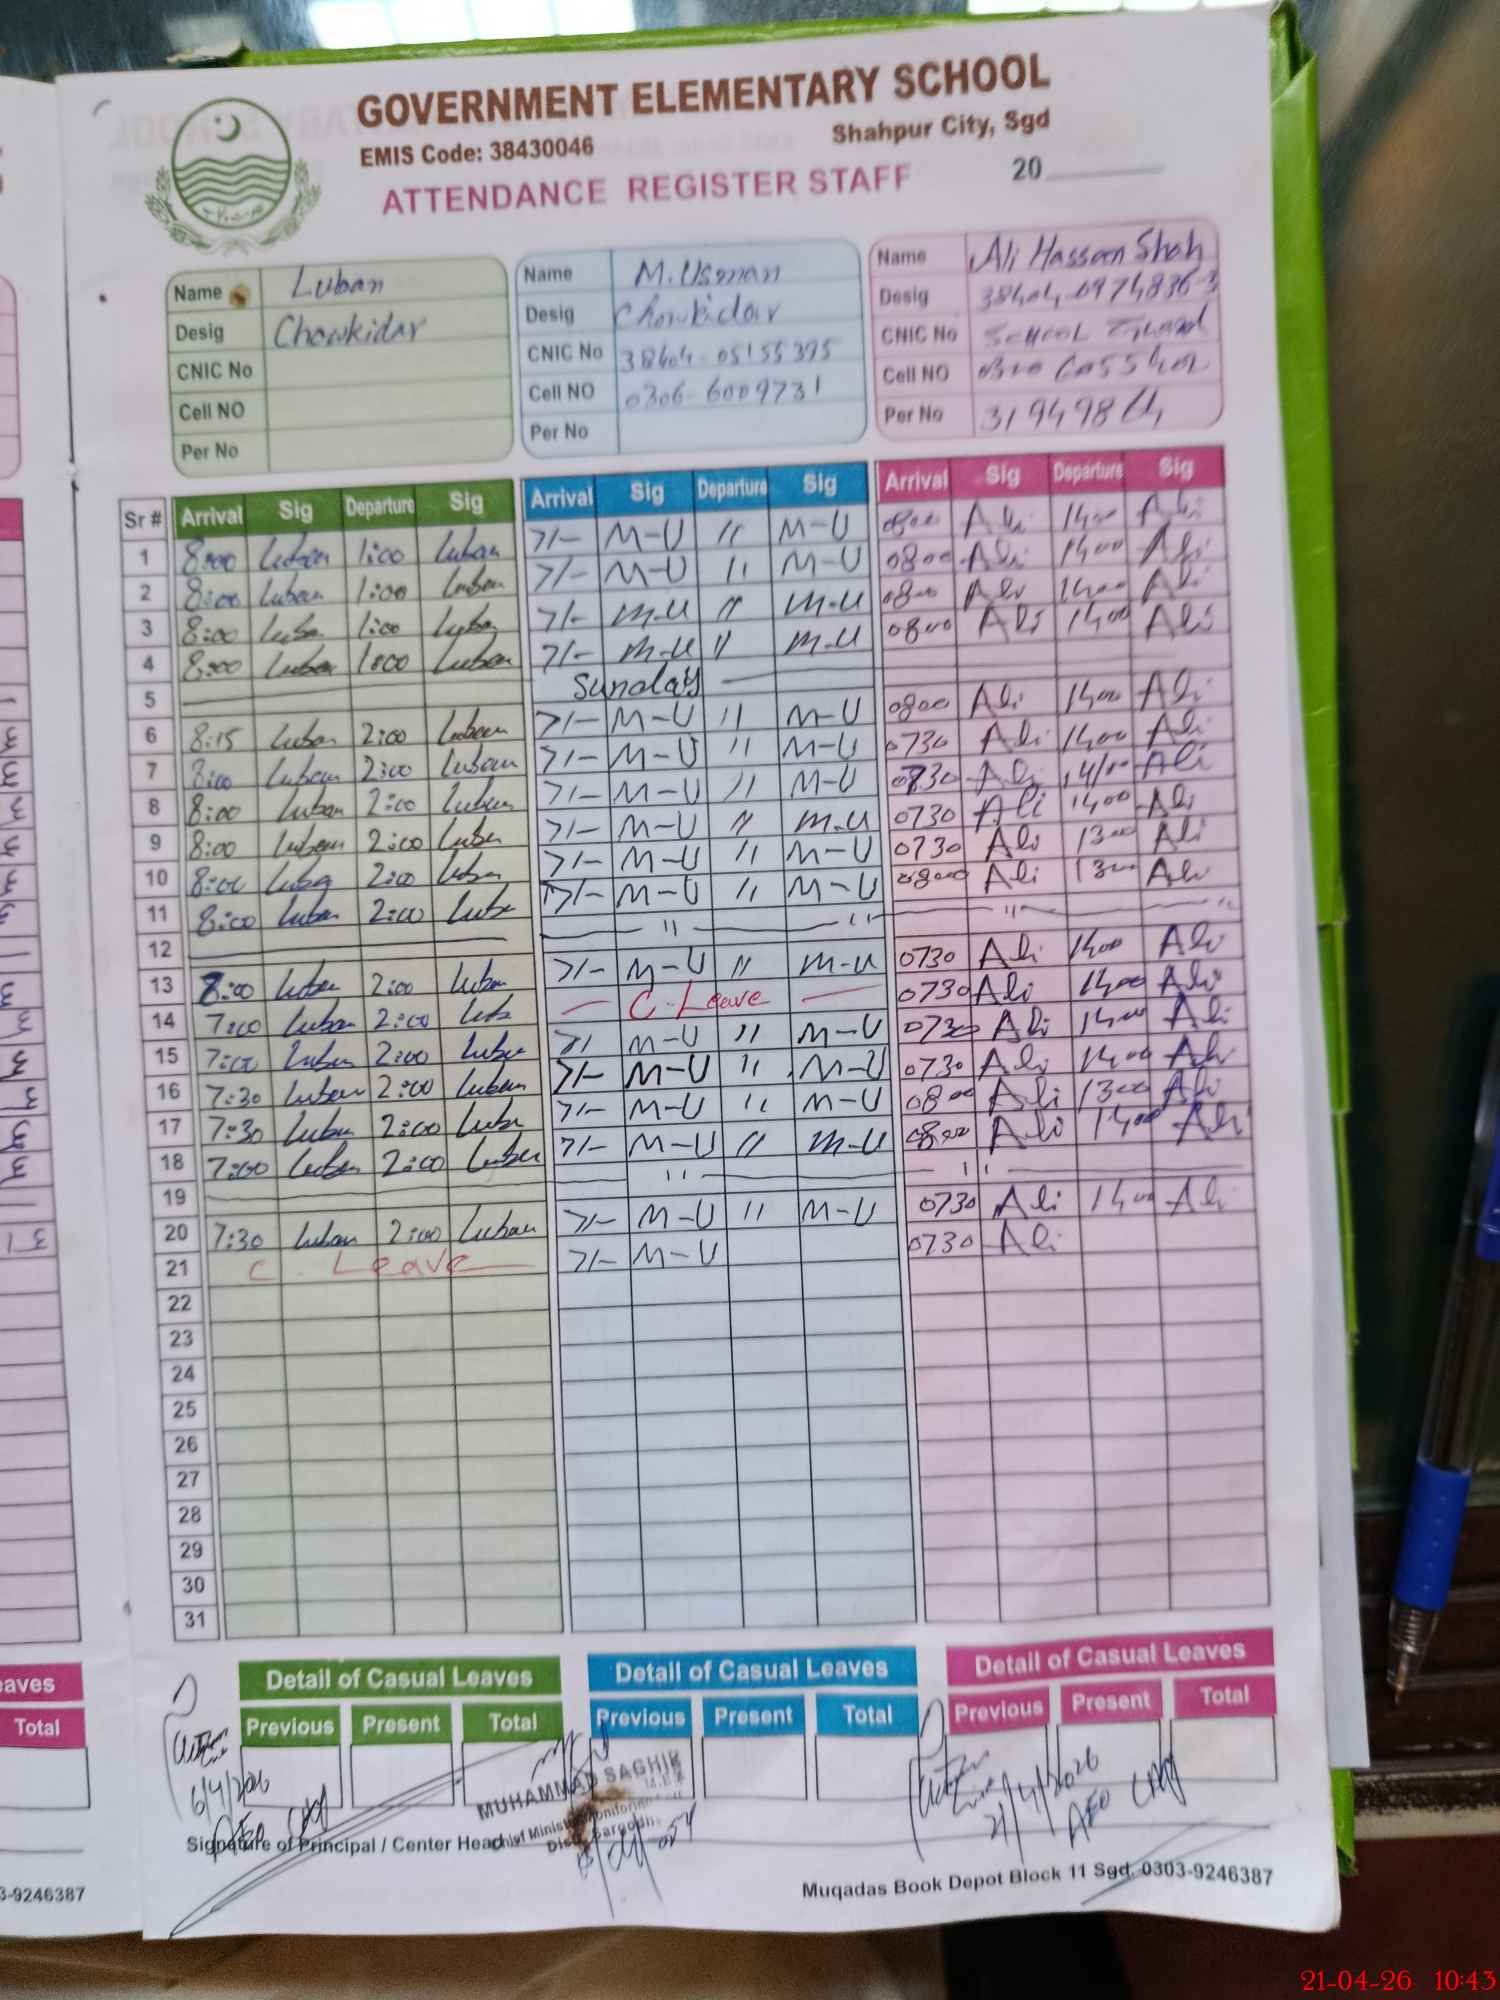 GOVERNMENT ELEMENTARY SCHOOL
EMIS Code: 38430046 Shahpur City, Sgd
ATTENDANCE REGISTER STAFF 20
Name Luban
Desig Chowkidar
CNIC No
Cell NO
Per No
Name M. Usman
Desig Chowkidar
CNIC No
Cell NO 0306-6009731
Per No
Name Ali Hassan Shah
Desig
CNIC No
Cell NO
Per No
Sr # Arrival Sig Departure Sig Arrival Sig Departure Sig Arrival Sig Departure Sig
1 8:00 Luban 1:00 Luban 7/- M-U 11 M-U 0800 Ali 1400 Ali
2 8:00 Luban 1:00 Luban 7/- M-U 11 M-U 0800 Ali 1400 Ali
3 8:00 Luban 1:00 Luban 7/- M-U 11 M-U 0800 Ali 1400 Ali
4 8:00 Luban 1:00 Luban 7/- M-U 11 M-U 0800 Ali 1400 Ali
5 Sunday
6 8:15 Luban 2:00 Luban 7/- M-U 11 M-U 0800 Ali 1400 Ali
7 8:00 Luban 2:00 Luban 7/- M-U 11 M-U 0730 Ali 1400 Ali
8 8:00 Luban 2:00 Luban 7/- M-U 11 M-U 0730 Ali 1400 Ali
9 8:00 Luban 2:00 Luban 7/- M-U 11 M-U 0730 Ali 1400 Ali
10 8:00 Luban 2:00 Luban 7/- M-U 11 M-U 0730 Ali 1300 Ali
11 8:00 Luban 2:00 Luban 7/- M-U 11 M-U 0800 Ali 1300 Ali
12 11 11 11 11
13 8:00 Luban 2:00 Luban 7/- M-U 11 M-U 0730 Ali 1400 Ali
14 7:00 Luban 2:00 Luban C. Leave 0730 Ali 1400 Ali
15 7:00 Luban 2:00 Luban 7/ M-U 11 M-U 0730 Ali 1400 Ali
16 7:30 Luban 2:00 Luban 7/- M-U 11 M-U 0730 Ali 1400 Ali
17 7:30 Luban 2:00 Luban 7/- M-U 11 M-U 0800 Ali 1300 Ali
18 7:00 Luban 2:00 Luban 7/- M-U 11 M-U 0800 Ali 1400 Ali
19 11 11
20 7:30 Luban 2:00 Luban 7/- M-U 11 M-U 0730 Ali 1400 Ali
21 C. Leave 7/- M-U 0730 Ali
22
23
24
25
26
27
28
29
30
31
Detail of Casual Leaves Detail of Casual Leaves Detail of Casual Leaves
Previous Present Total Previous Present Total Previous Present Total
6/4/2026
AEO
MUHAMMAD SAGHIR
21/4/2026
AEO
Signature of Principal / Center Head
Muqadas Book Depot Block 11 Sgd. 0303-9246387
eaves
Total
3-9246387
21-04-26 10:43